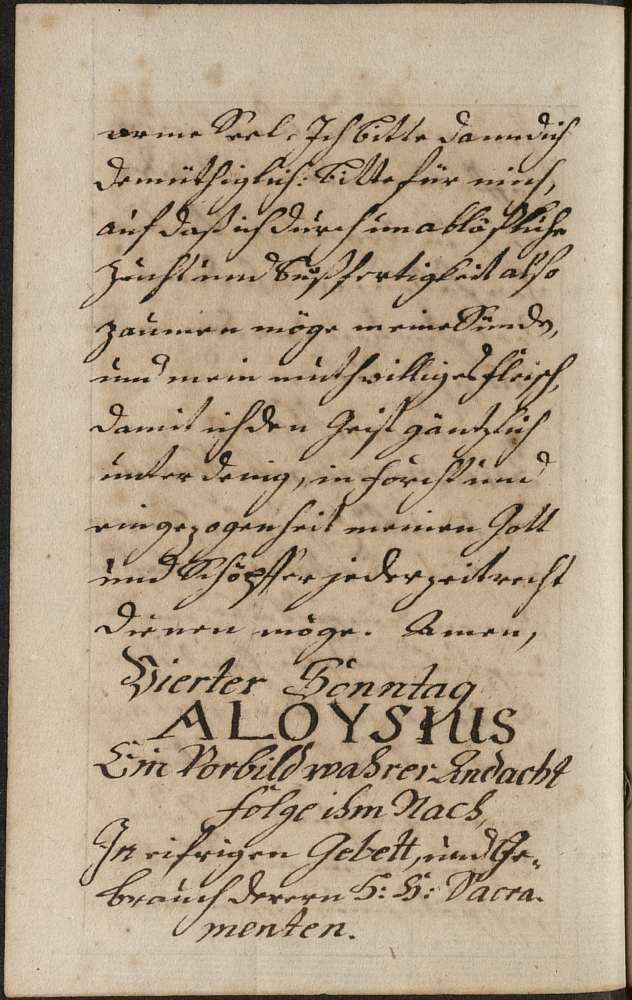 arme Seel. Ich bitte dann dich
demüthiglich: bitte für mich,
auf daß ich durch unabläßliche
Zucht und bußfertigkeit also
zaumen möge meine Sünde,
und mein muthwilliges fleisch,
damit ich den Geist gäntzlich
unter in forcht und
eingezogenheit meinen Gott
und Schöpffer jederzeit recht
dienen möge. Amen,
Vierter Sonntag
ALOYSIUS
Ein Vorbild wahrer Andacht
folge ihm Nach,
In eifrigen Gebett, und Ge-
brauch deren H: H: Sacra-
menten.